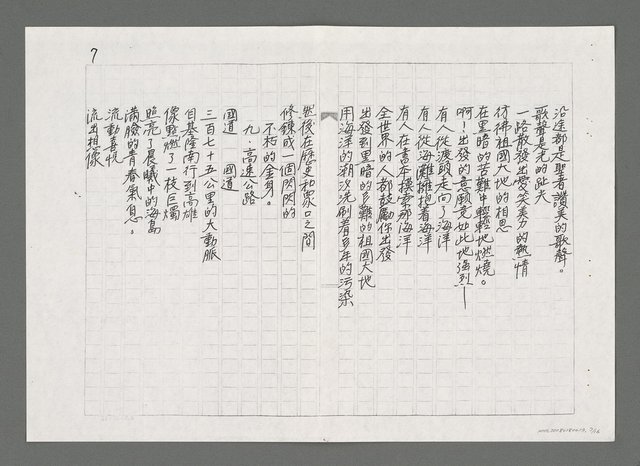 7
沿途都是聖者讚美的歌聲。
歌聲是光的
一路散發出愛笑美力的熱情
彷彿祖國大地的相思
在黑暗的苦難中輕輕地燃燒。
啊！出發的意願竟如此地強烈—
有人從渡頭走向了海洋
有人從海灘擁抱着海洋
有人在書本摸索那海洋
全世界的人都鼓勵你出發
出發到黑暗的多難的祖國大地
用海洋的潮汐洗刷着百年的污染
然後在歷史和眾口之間
修鍊成一個閃閃的
不朽的金身。
九、高速公路
國道 國道
三百七十五公里的大動脈
自基隆南行到高雄
像點燃了一枝巨燭
照亮了晨曦中的海島
滿臉的青春氣息。
流動喜悅
流出想像